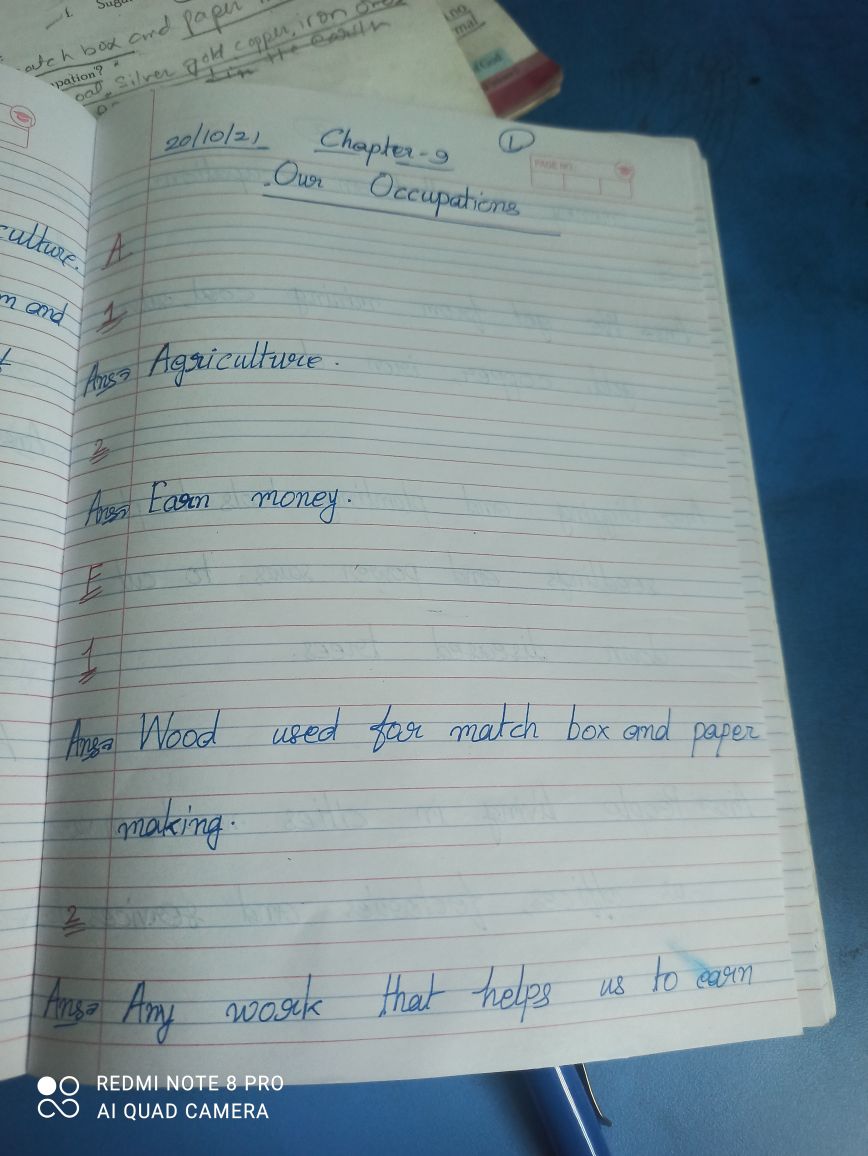 1. Suga
atch box and paper
pation?
oal, Silver gold copper, iron ores
in the earth
no
mal
culture.
m and
20/10/21 Chapter-9 1
PAGE NO.
Our Occupations
A
1
Ans⇒ Agriculture.
2
Ans⇒ Earn money.
E
1
Ans⇒ Wood used for match box and paper
making.
2
Ans⇒ Any work that helps us to earn
REDMI NOTE 8 PRO
AI QUAD CAMERA